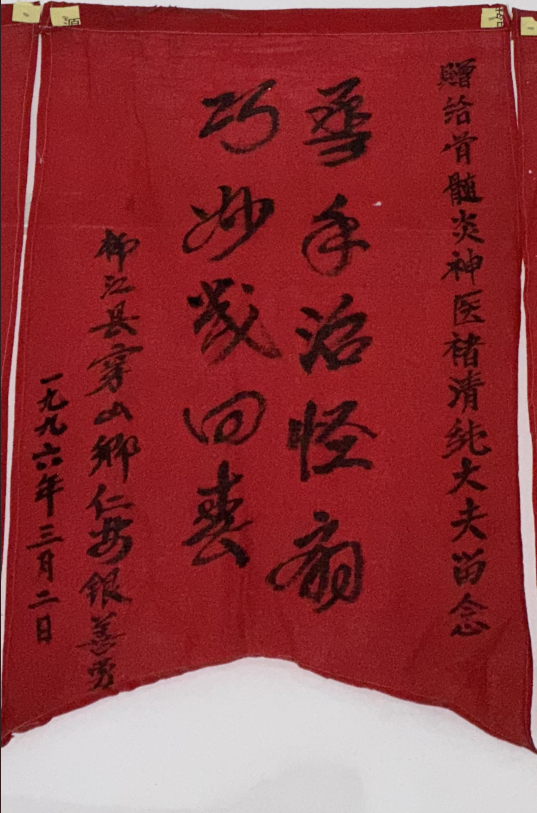 赠给骨髓炎神医褚清纯大夫留念
手治怪病
巧妙幾回春
柳江县穿山鄉仁安银善勇
一九九六年三月二日
源